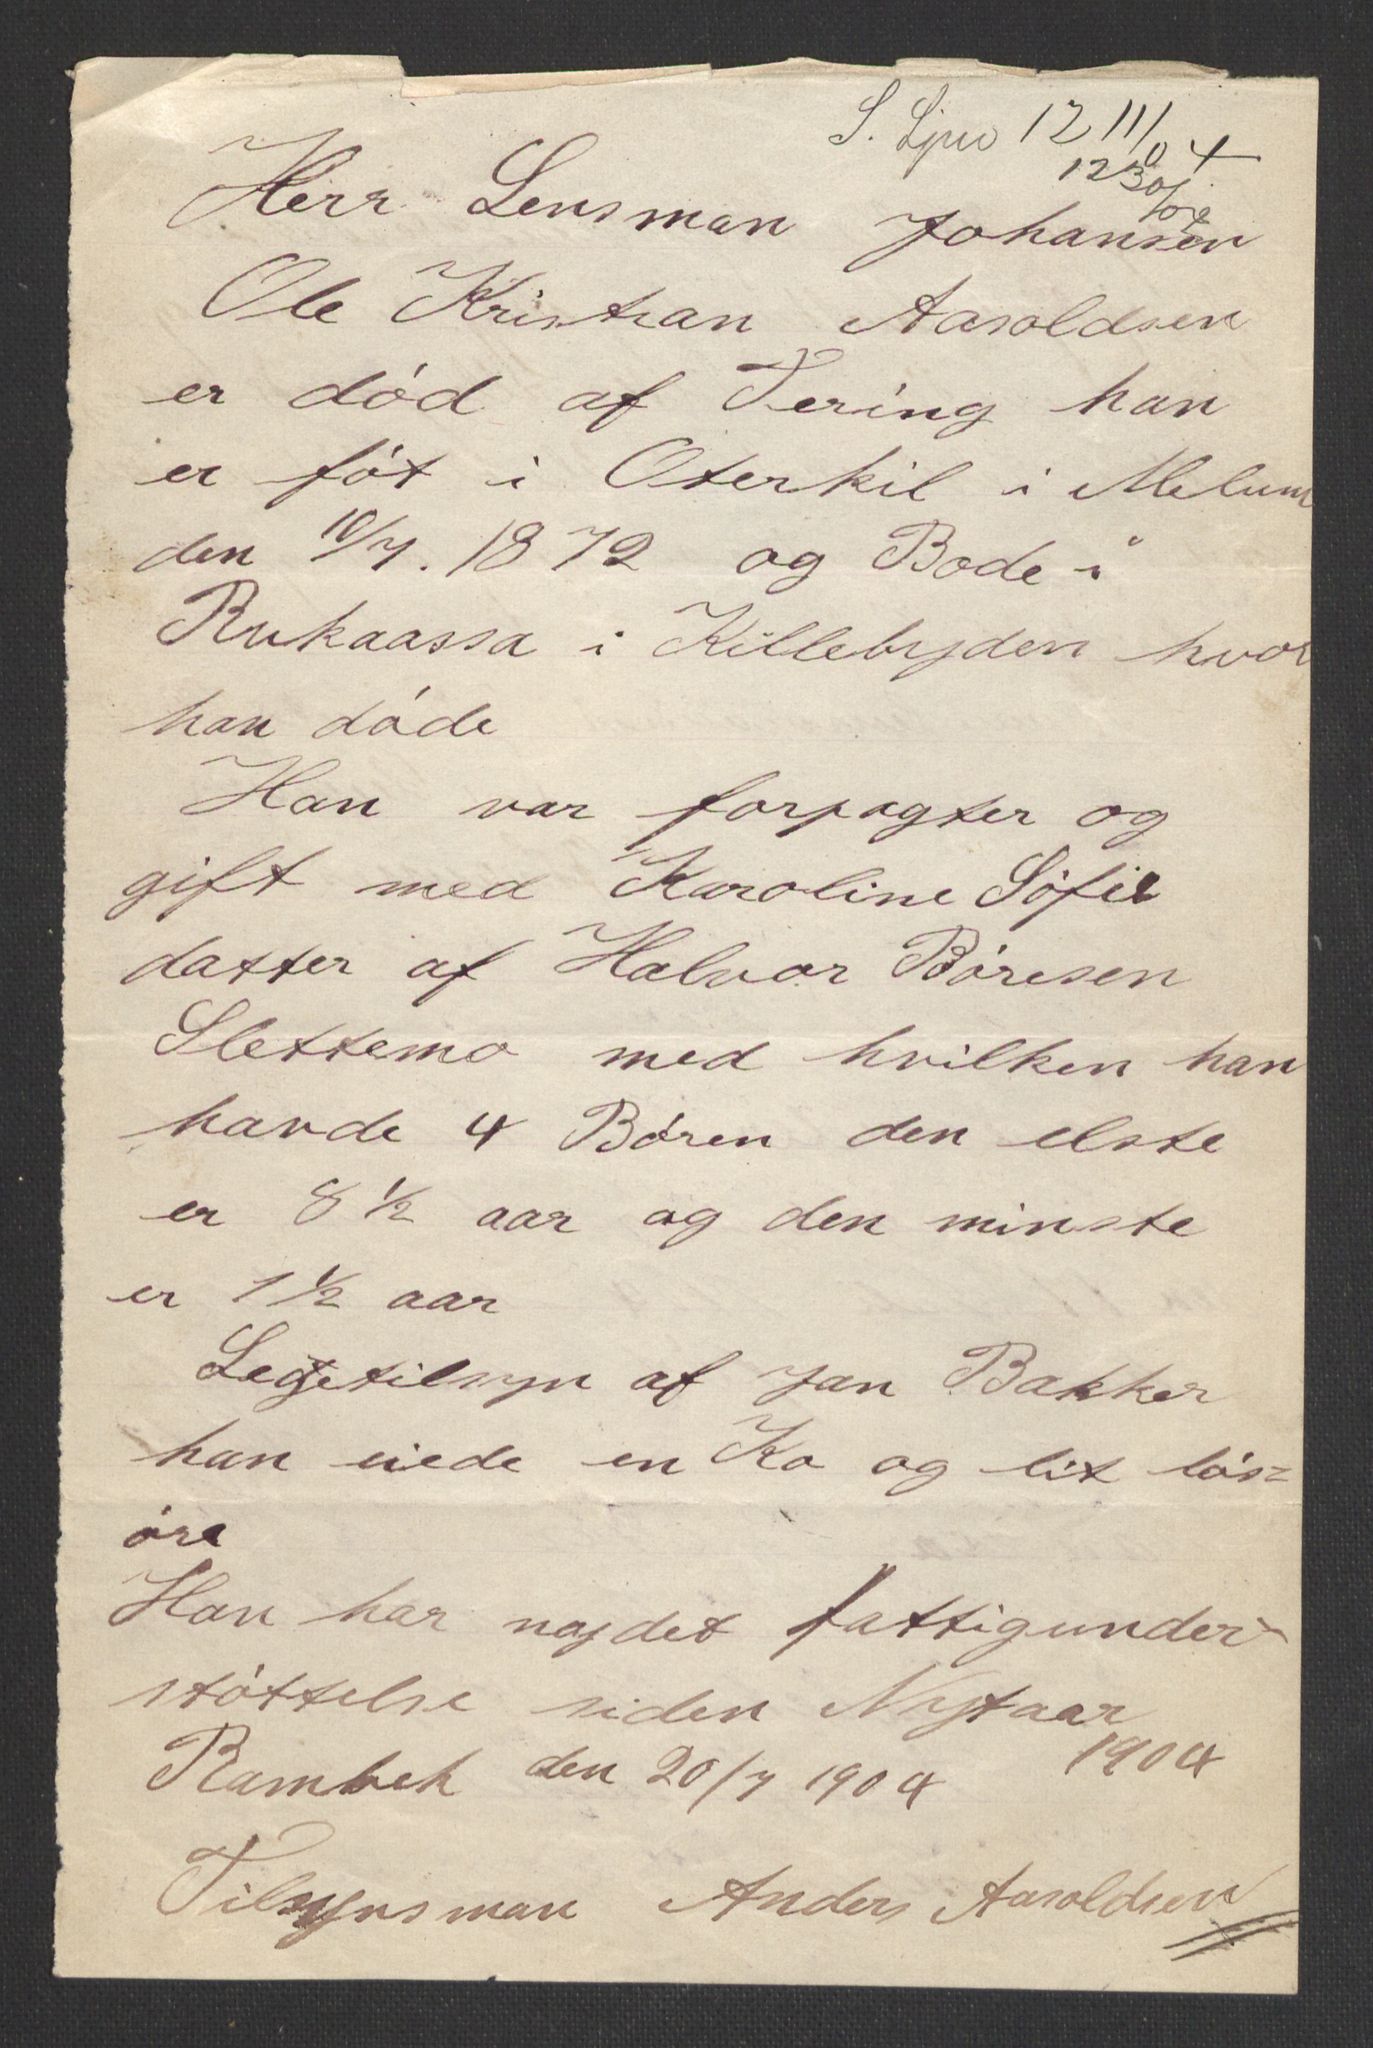 S. Ljur 12 III 04
Herr Lensman Johansen
Ole Kristian Aaroldsen
er død af Tering han
er føt i Oterkil i Melum
den 10/7. 1872 og Bode i
Rukaassa i Killebygden hvor
han døde
Han var forpagter og
gift med Karoline Søfie
datter af Halvor Børesen
Slettemo med hvilken han
havde 4 Børen den elste
er 8 1/2 aar og den minste
er 1 1/2 aar
Legetilsyn af Jan Bakker
han eiede en Ko og lit løs=
øre
Han har nydet fattigunder-
støttelse siden Nytaar
1904
Rambek den 20/7 1904
Tilsynsman Anders Aaroldsen